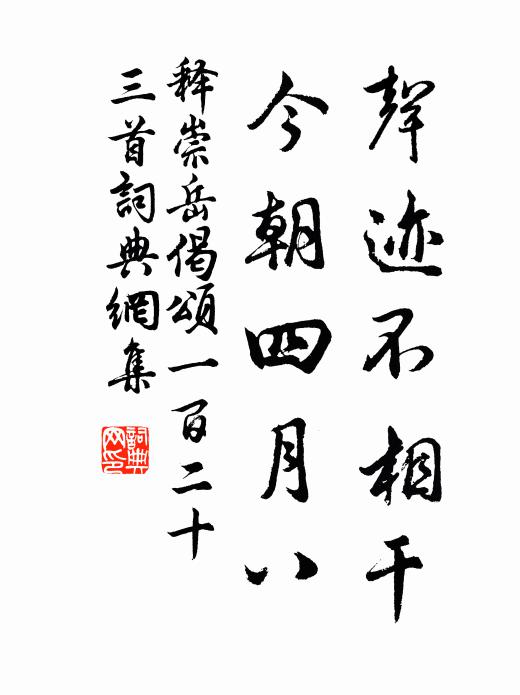 聲迹不相干
今朝四月八
释崇岳偈頌一百二十
三首詞典網集
詞典网印